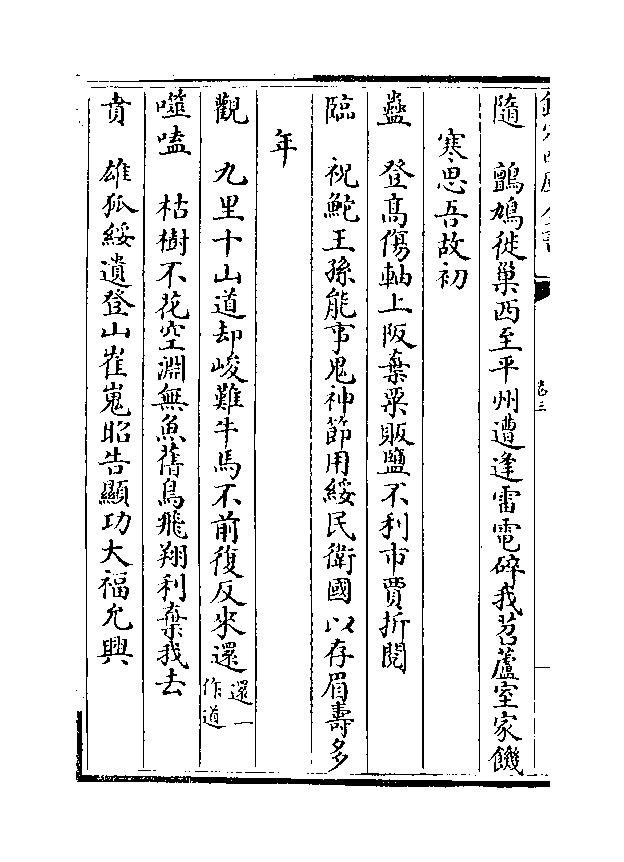 隨　鸇鳩徙巢西至平州遭逢雷電碎我苕蘆室家饑
寒思吾故初
蠱　登高傷軸上阪棄粟販鹽不利市賈折閱
臨　祝鮀王孫能事鬼神節用綏民衛國以存眉壽多
年
觀　九里十山道却峻難牛馬不前復反來還還一作道
噬嗑　枯樹不花空淵無魚舊鳥飛翔利棄我去
賁　雄狐綏遺登山崔嵬昭告顯功大福允興